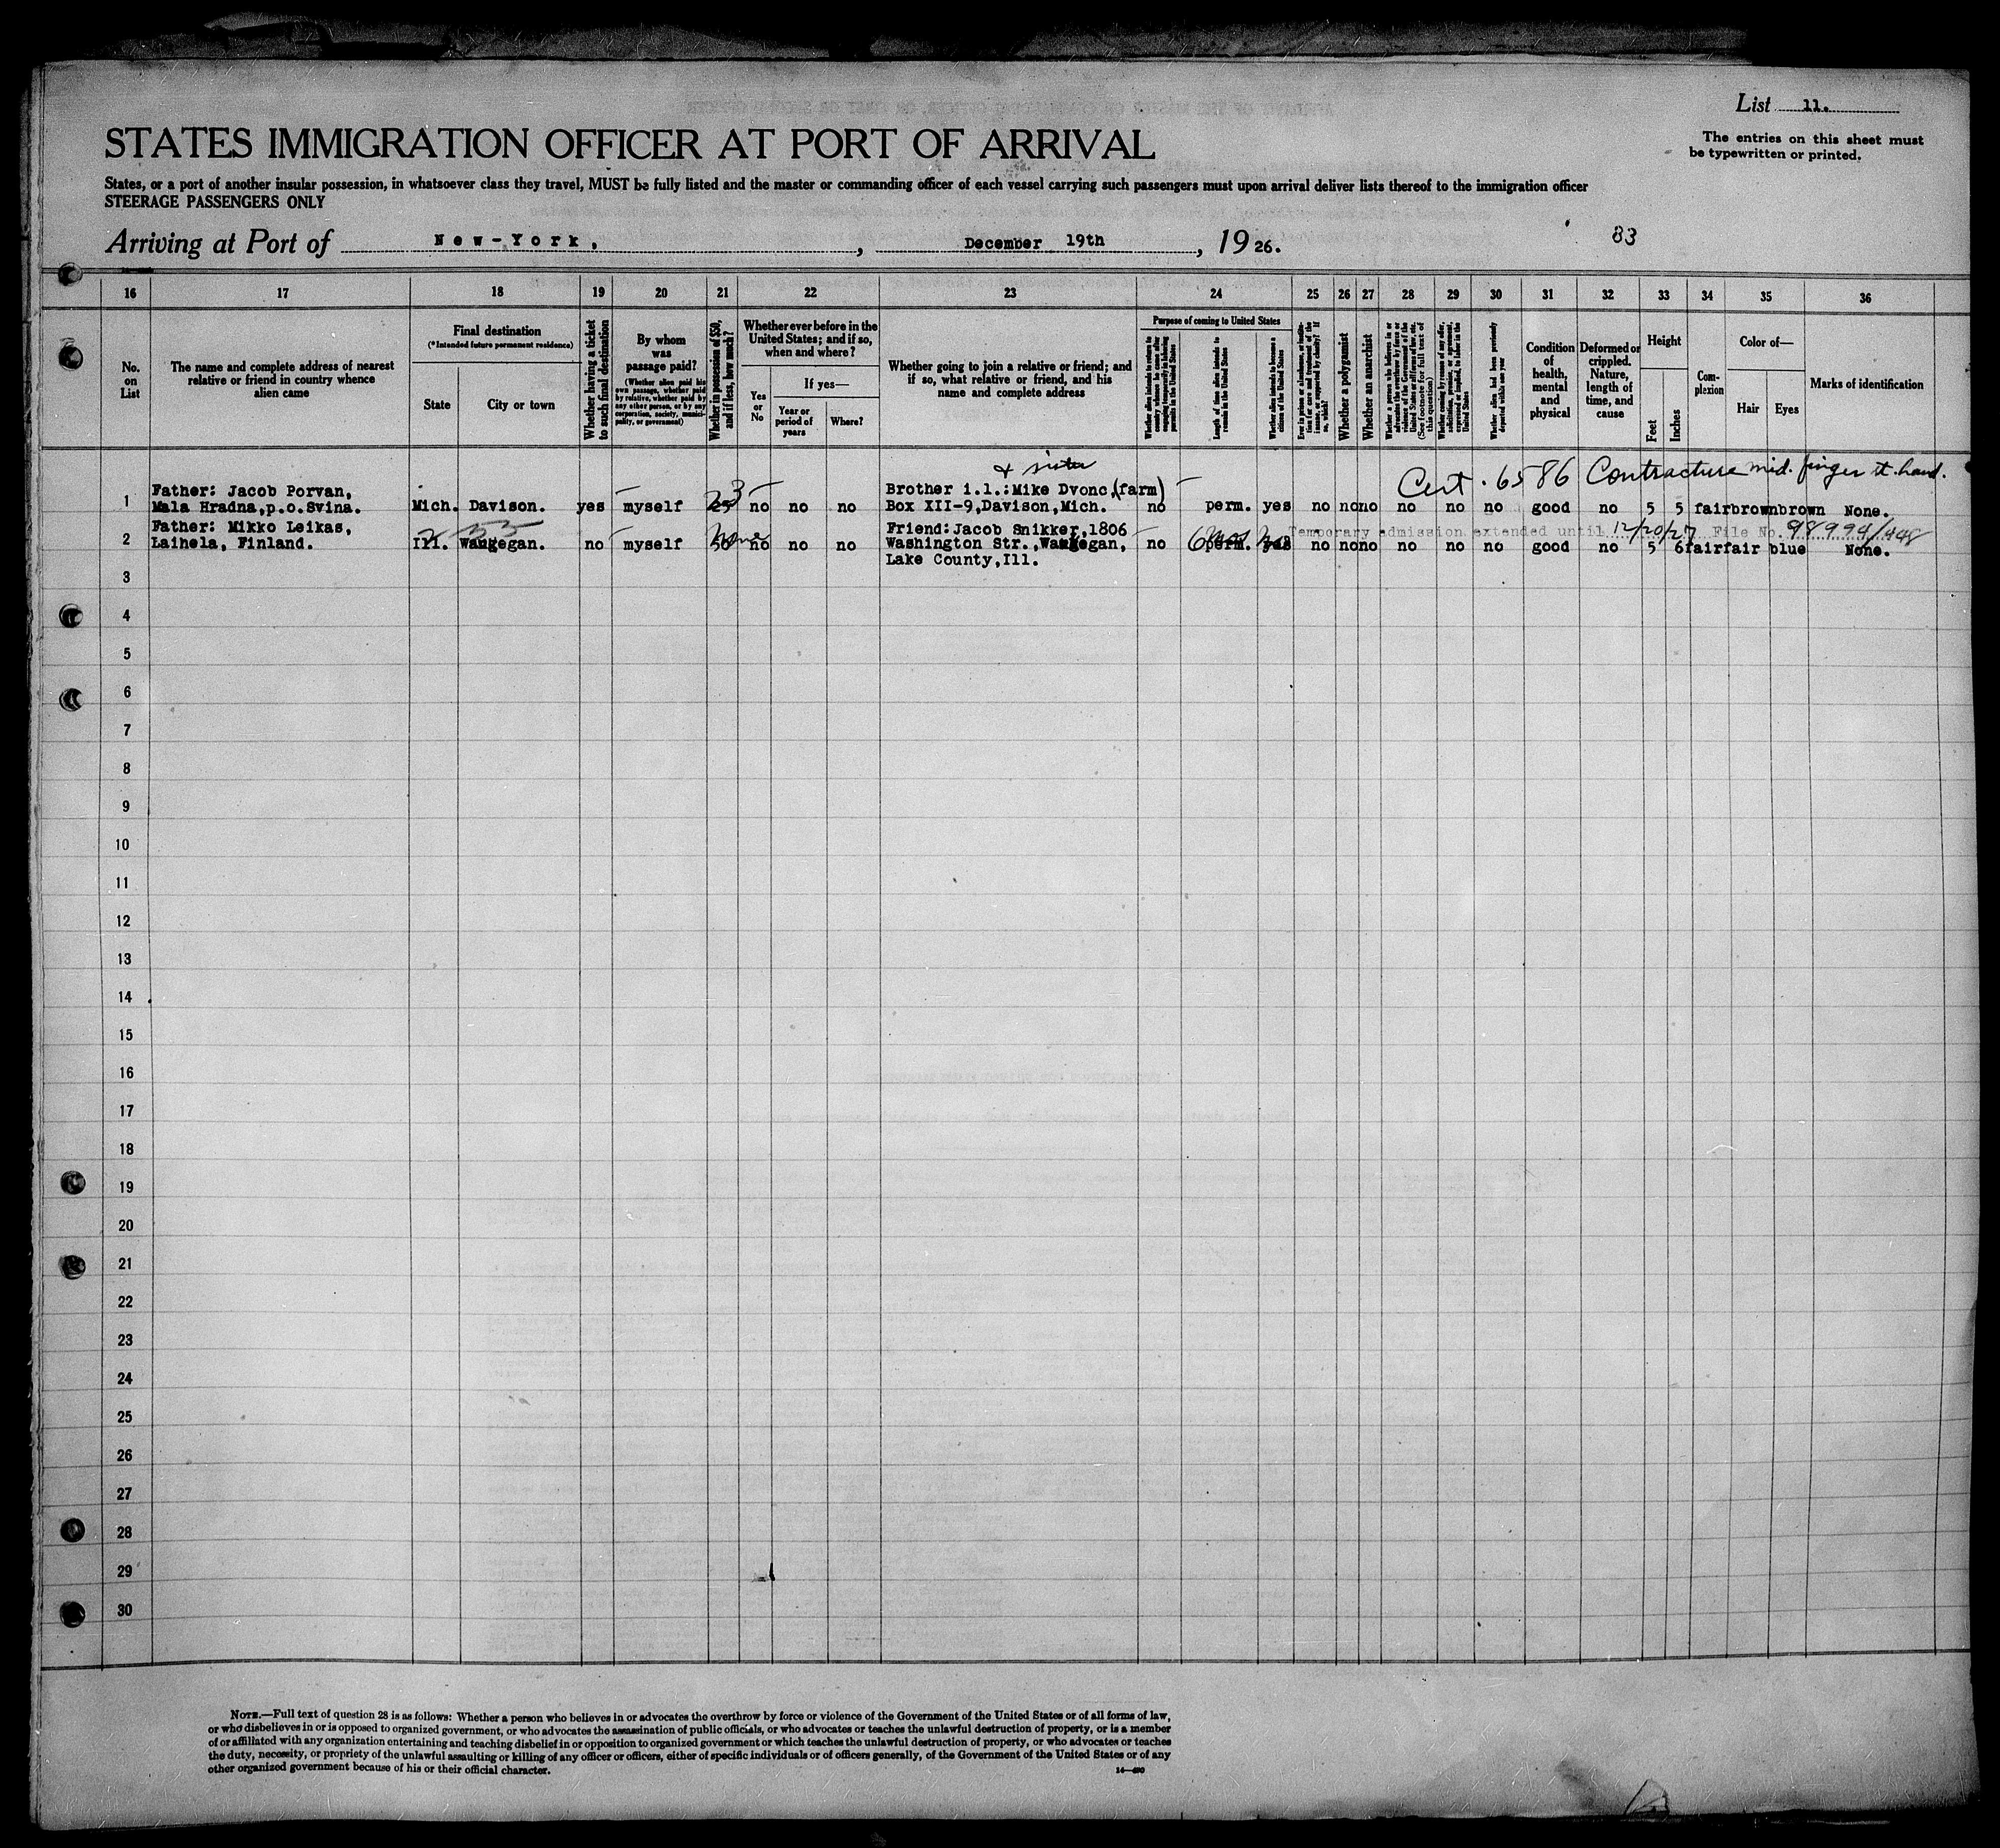 List 11.
The entries on this sheet must
be typewritten or printed.
STATES IMMIGRATION OFFICER AT PORT OF ARRIVAL
States, or a port of another insular possession, in whatsoever class they travel, MUST be fully listed and the master or commanding officer of each vessel carrying such passengers must upon arrival deliver lists thereof to the immigration officer
STEERAGE PASSENGERS ONLY
Arriving at Port of New-York, , December 19th , 1926.
83
16 17 18 19 20 21 22 23 24 25 26 27 28 29 30 31 32 33 34 35 36
No.
on
List
The name and complete address of nearest
relative or friend in country whence
alien came
Final destination
(*Intended future permanent residence)
State
City or town
Whether having a ticket
to such final destination
By whom
was
passage paid?
(Whether alien paid his
own passage, whether paid
by relative, whether paid by
any other person, or by any
corporation, society, munici-
pality, or government)
Whether in possession of $50,
and if less, how much?
Whether ever before in the
United States; and if so,
when and where?
Yes
or
No
If yes—
Year or
period of
years
Where?
Whether going to join a relative or friend; and
if so, what relative or friend, and his
name and complete address
Purpose of coming to United States
Length of time alien intends to
remain in the United States
Whether alien intends to become a
citizen of the United States
Whether a polygamist
Whether an anarchist
Whether alien had been previously
deported within one year
Condition
of
health,
mental
and
physical
Deformed or
crippled.
Nature,
length of
time, and
cause
Height
Feet
Inches
Com-
plexion
Color of—
Hair
Eyes
Marks of identification
& sister
Cert. 6586 Contracture mid. finger rt. hand.
1 Father: Jacob Porvan,
Mala Hradna,p.o.Svina.
Mich. Davison. yes myself 25 3 no no no
Brother i.l.:Mike Dvonc,(farm)
Box XII-9,Davison,Mich.
no perm. yes no no no no no no good no 5 5 fair brown brown None.
2 Father: Mikko Leikas,
Laihela, Finland.
Ill. Waukegan. no myself 50 None no no no
Friend:Jacob Snikker,1806
Washington Str.,Waukegan,
Lake County,Ill.
no perm. 6 mos yes no no no no no no no good no 5 6 fair fair blue None.
Temporary admission extended until 12/20/27 File No. 98994/448
3
4
5
6
7
8
9
10
11
12
13
14
15
16
17
18
19
20
21
22
23
24
25
26
27
28
29
30
NOTE.—Full text of question 28 is as follows: Whether a person who believes in or advocates the overthrow by force or violence of the Government of the United States or of all forms of law,
or who disbelieves in or is opposed to organized government, or who advocates the assassination of public officials, or who advocates or teaches the unlawful destruction of property, or is a member
of or affiliated with any organization entertaining and teaching disbelief in or opposition to organized government or which teaches the unlawful destruction of property, or who advocates or teaches
the duty, necessity, or propriety of the unlawful assaulting or killing of any officer or officers, either of specific individuals or of officers generally, of the Government of the United States or of any
other organized government because of his or their official character.